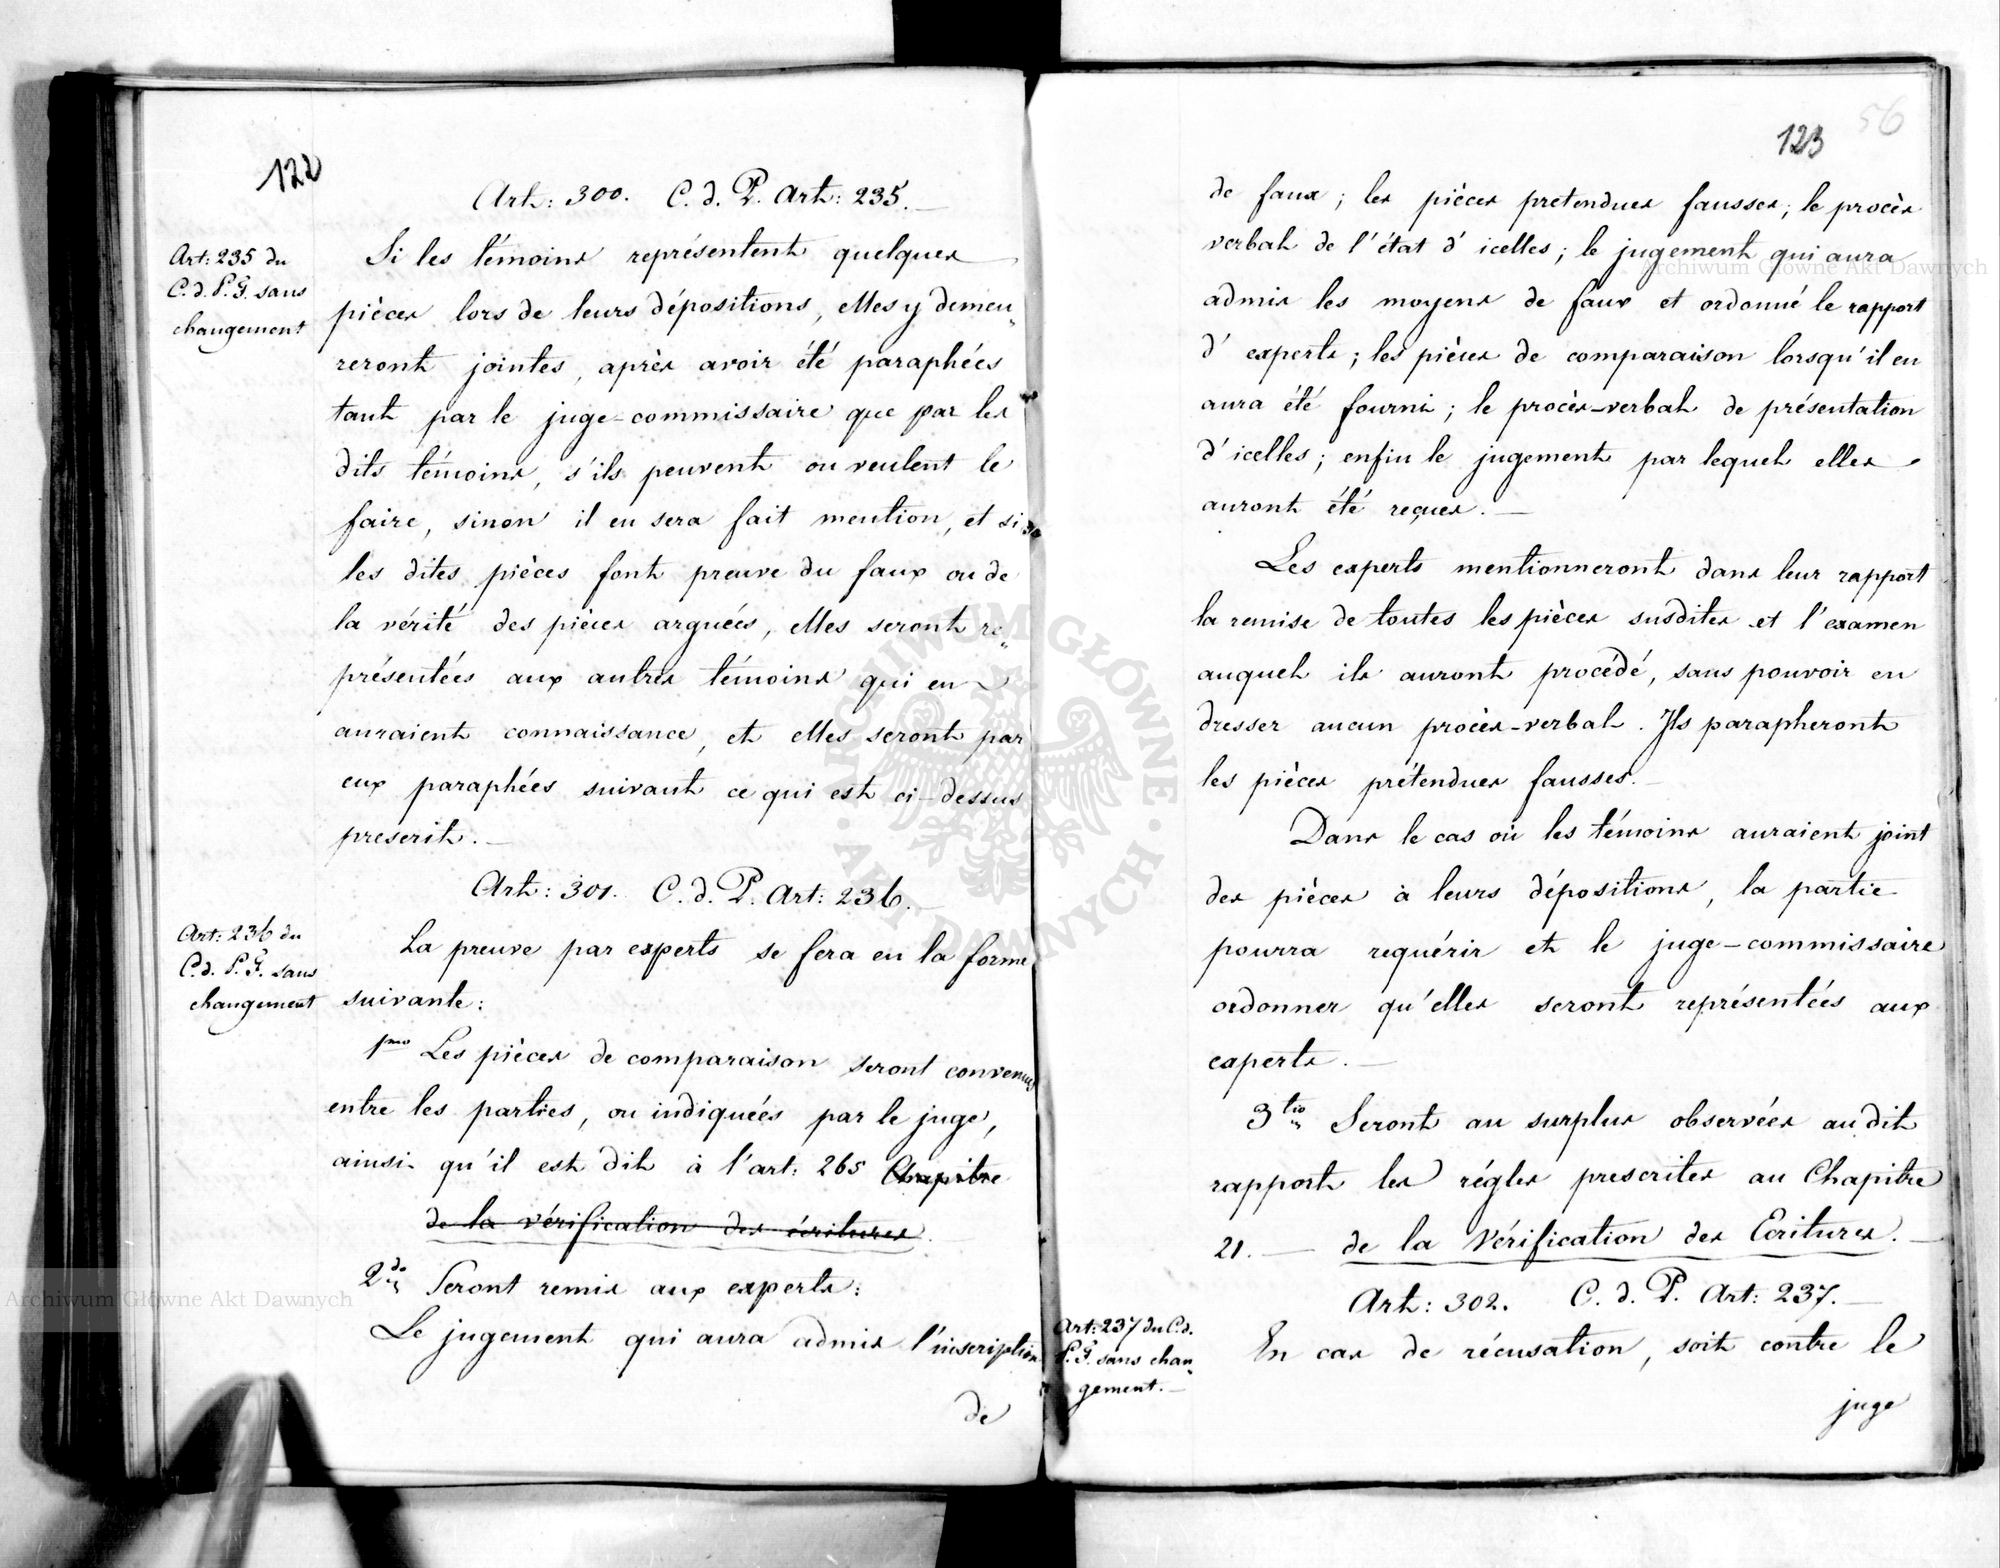 122
Art: 300. C. d. P. Art: 235.
Art: 235 du
C. d. P. G. sans
changement
Si les témoins représentent quelques
pièces lors de leurs dépositions, elles y demeu„
reront jointes, après avoir été paraphées
tant par le juge-commissaire que par les
dits témoins, s'ils peuvent ou veulent le
faire, sinon il en sera fait mention, et si
les dites pièces font preuve du faux ou de
la vérité des pièces arguées, elles seront re„
présentées aux autres témoins qui en
auraient connaissance, et elles seront par
eux paraphées suivant ce qui est ci-dessus
prescrit.
Art: 301. C. d. P. Art: 236.
Art: 236 du
C. d. P. G. sans
changement
La preuve par experts se fera en la forme
suivante:
1mo Les pièces de comparaison seront convenues
entre les parties, ou indiquées par le juge,
ainsi qu'il est dit à l'art: 265 Chapitre
de la vérification des écritures.
2do Seront remis aux experts:
Le jugement qui aura admis l'inscription
de
56
123
de faux; les pièces pretendues fausses; le procès
verbal de l'état d'icelles; le jugement qui aura
admis les moyens de faux et ordonné le rapport
d'experts; les pièces de comparaison lorsqu'il en
aura été fourni; le procès-verbal de présentation
d'icelles; enfin le jugement par lequel elles
auront été reçues.
Les experts mentionneront dans leur rapport
la remise de toutes les pièces susdites et l'examen
auquel ils auront procédé, sans pouvoir en
dresser aucun procès-verbal. Ils parapheront
les pièces prétendues fausses.
Dans le cas où les témoins auraient joint
des pièces à leurs dépositions, la partie
pourra requérir et le juge-commissaire
ordonner qu'elles seront représentées aux
experts.
3tio Seront au surplus observées au dit
rapport les régles prescrites au Chapitre
21. — de la Vérification des Ecritures.
Art: 302. C. d. P. Art: 237.
Art: 237 du C. d.
P. G. sans chan„
gement.
En cas de récusation, soit contre le
juge
Archiwum Główne Akt Dawnych
Archiwum Główne Akt Dawnych
ARCHIWUM GŁÓWNE · AKT DAWNYCH ·